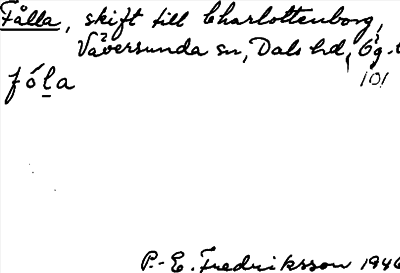 Fålla, skift till Charlottenborg,
Väversunda sn, Dals hd, Ög.
101
fóla
P.-E. Fredriksson 1946